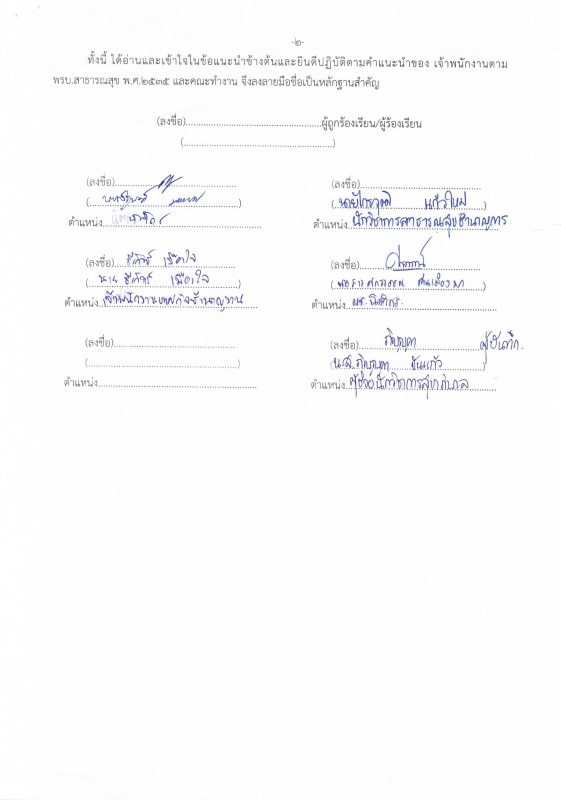 -๒-
ทั้งนี้ ได้อ่านและเข้าใจในข้อแนะนำข้างต้นและยินดีปฏิบัติตามคำแนะนำของ เจ้าพนักงานตาม
พรบ.สาธารณสุข พ.ศ.๒๕๓๕ และคณะทำงาน จึงลงลายมือชื่อเป็นหลักฐานสำคัญ
(ลงชื่อ)..............................ผู้ถูกร้องเรียน/ผู้ร้องเรียน
(..............................)
(ลงชื่อ)
ตำแหน่ง
(ลงชื่อ)..............................
(นาย แก้วใหม่)
ตำแหน่ง นักวิชาการสาธารณสุขชำนาญการ
(ลงชื่อ)
ตำแหน่ง เจ้าพนักงานเทศกิจชำนาญงาน
(ลงชื่อ)
(นางสาว)
ตำแหน่ง ผช.นิติกร
(ลงชื่อ)..............................
(..............................)
ตำแหน่ง..............................
(ลงชื่อ) ภิญญดา ผู้บันทึก
(น.ส.ภิญญดา ขันแก้ว)
ตำแหน่ง ผู้ช่วยนักวิชาการสุขาภิบาล